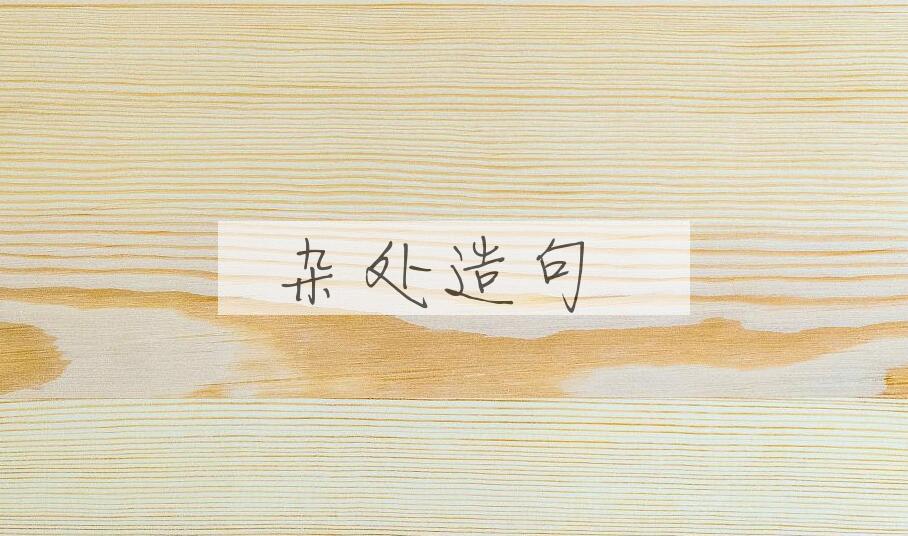 杂处造句